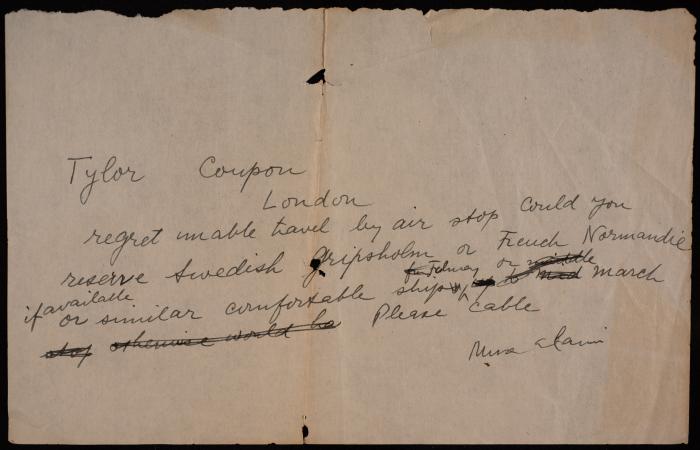 Tylor Coupon
London
regret unable travel by air stop could you
reserve Swedish Gripsholm or French Normandie
if available
or similar comfortable ships February or middle to mid March
stop otherwise would ha Please cable